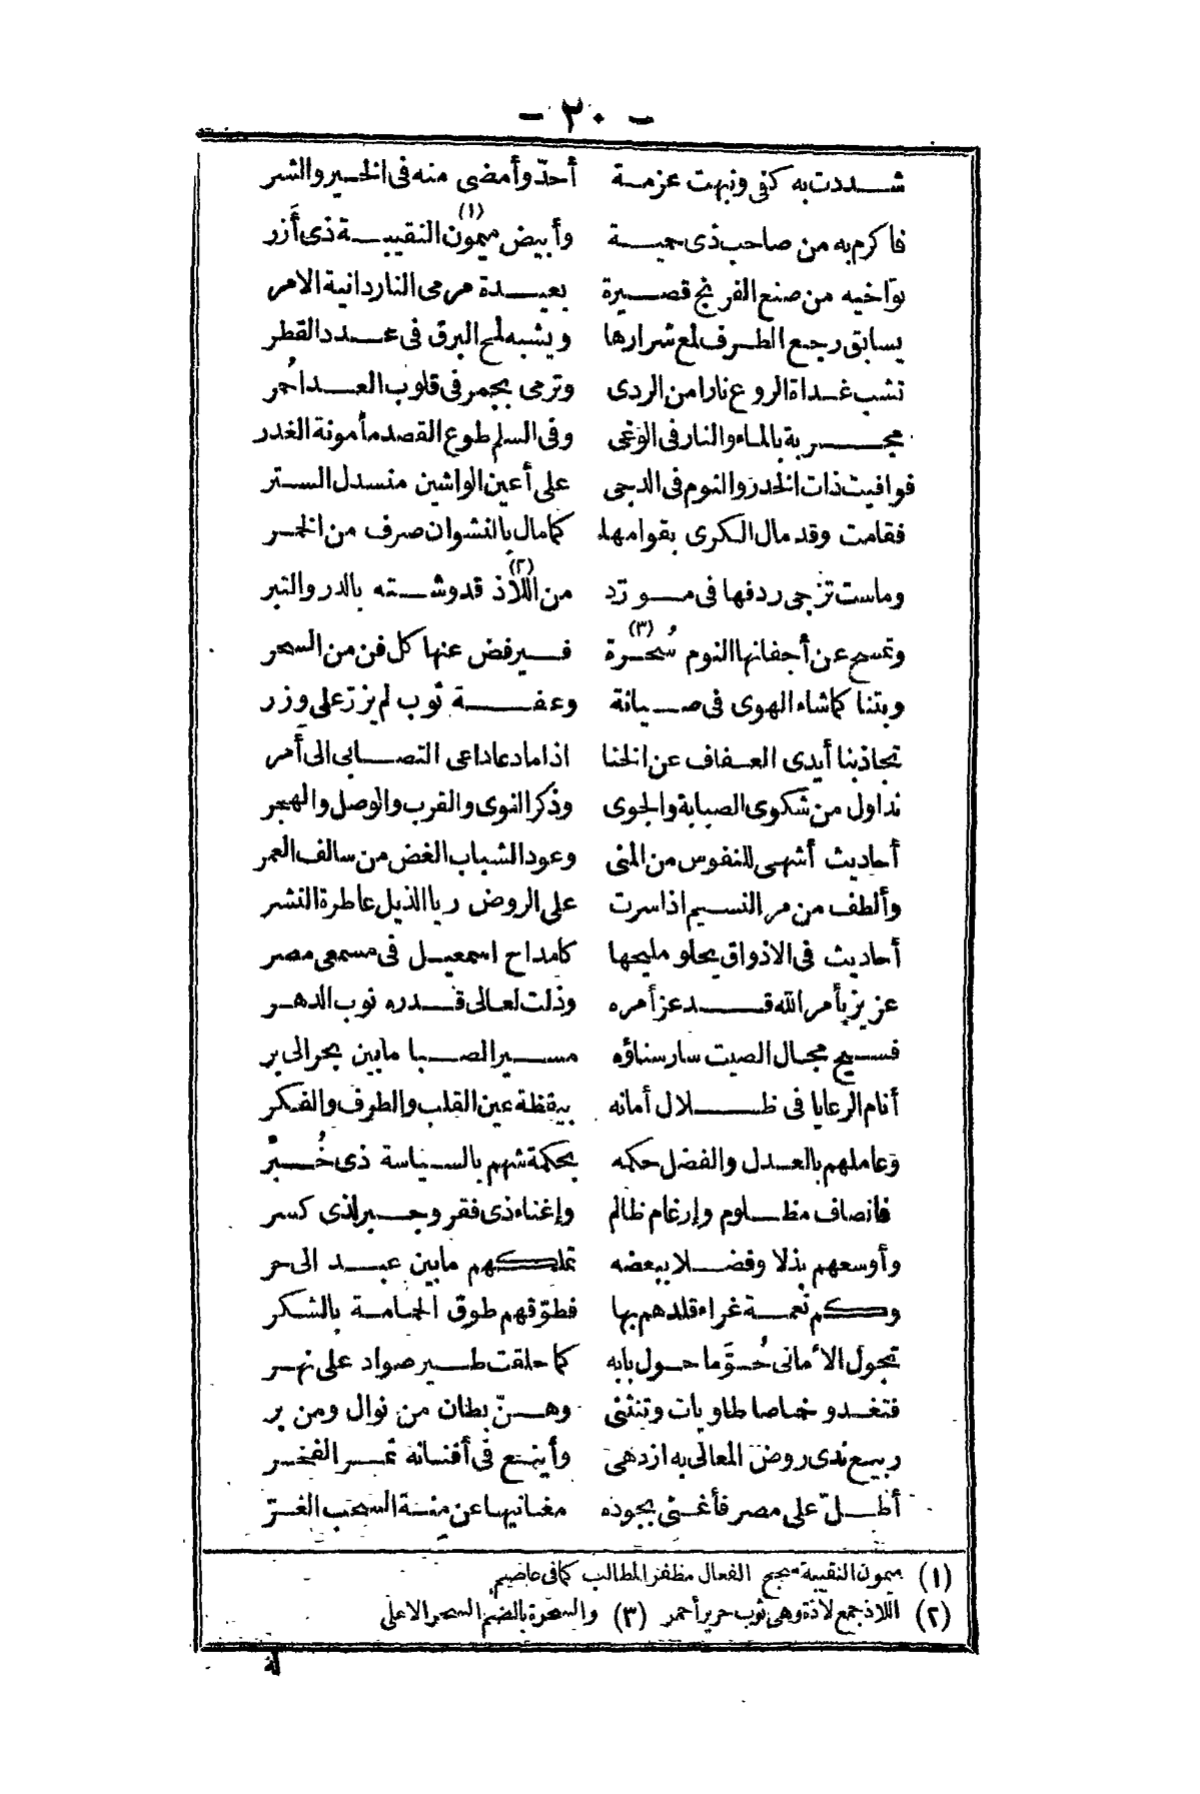 - ٢٠ -
شددت به كفى ونبهت عزمة أحدّ وأمضى منه فى الخير والشر
فاكرم به من صاحب ذى حمية وأبيض ميمون النقيبة (١) ذى أزر
نواخيه من صنع الفرنج قصيرة بعيدة مرمى النار دانية الامر
يسابق رجع الطرف لمع شرارها ويشبه لمح البرق فى عدد القطر
تشب غداة الروع نارا من الردى وترمى بجمر فى قلوب العدا حُمر
مجربة بالماء والنار فى الوغى وفى السلم طوع القصد مأمونة الغدر
فوافيت ذات الخدر والنوم فى الدجى على أعين الواشين منسدل الستر
فقامت وقد مال الكرى بقوامها كما مال بالنشوان صرف من الخمر
وماست تزجى ردفها فى مورّد من اللاذ (٢) قد وشته بالدر والتبر
وتمسح عن أجفانها النوم سُحرة (٣) فيرفض عنها كل فن من السحر
وبتنا كما شاء الهوى فى صيانة وعفة ثوب لم يزرّ على وزر
تجاذبنا أيدى العفاف عن الخنا اذا ما دعا داعى التصابى الى أمر
نداول من شكوى الصبابة والجوى وذكر النوى والقرب والوصل والهجر
أحاديث أشهى للنفوس من المنى وعود الشباب الغض من سالف العمر
وألطف من مر النسيم اذا سرت على الروض ريا الذيل عاطرة النشر
أحاديث فى الاذواق يحلو مليحها كامداح اسمعيل فى مسمعى مصر
عزيز بأمر الله قد عز أمره وذلت لعالى قدره نوب الدهر
فسيح مجال الصيت سار سناؤه مسير الصبا ما بين بحر الى بر
أنام الرعايا فى ظلال أمانه بيقظة عين القلب والطرف والفكر
وعاملهم بالعدل والفضل حكمه بحكمة شهم بالسياسة ذى خُبْر
فانصاف مظلوم وإرغام ظالم وإغناء ذى فقر وجبر لذى كسر
وأوسعهم بذلا وفضلا ببعضه تملكهم ما بين عبد الى حر
وكم نعمة غراء قلدهم بها فطوّقهم طوق الحمامة بالشكر
تجول الأمانى حُوَّما حول بابه كما حلقت طير صواد على نهر
فتغدو خماصا طاويات وتنثنى وهنّ بطان من نوال ومن بر
ربيع ندى روض المعالى به ازدهى وأينع فى أفنانه ثمر الفخر
أطلّ على مصر فأغنى بجوده مغانيها عن منة السحب الغرّ
(١) ميمون النقيبة منجح الفعال مظفر المطالب كما فى عاصم
(٢) اللاذ جمع لاذة وهى ثوب حرير أحمر (٣) والسحرة بالضم السحر الاعلى
له